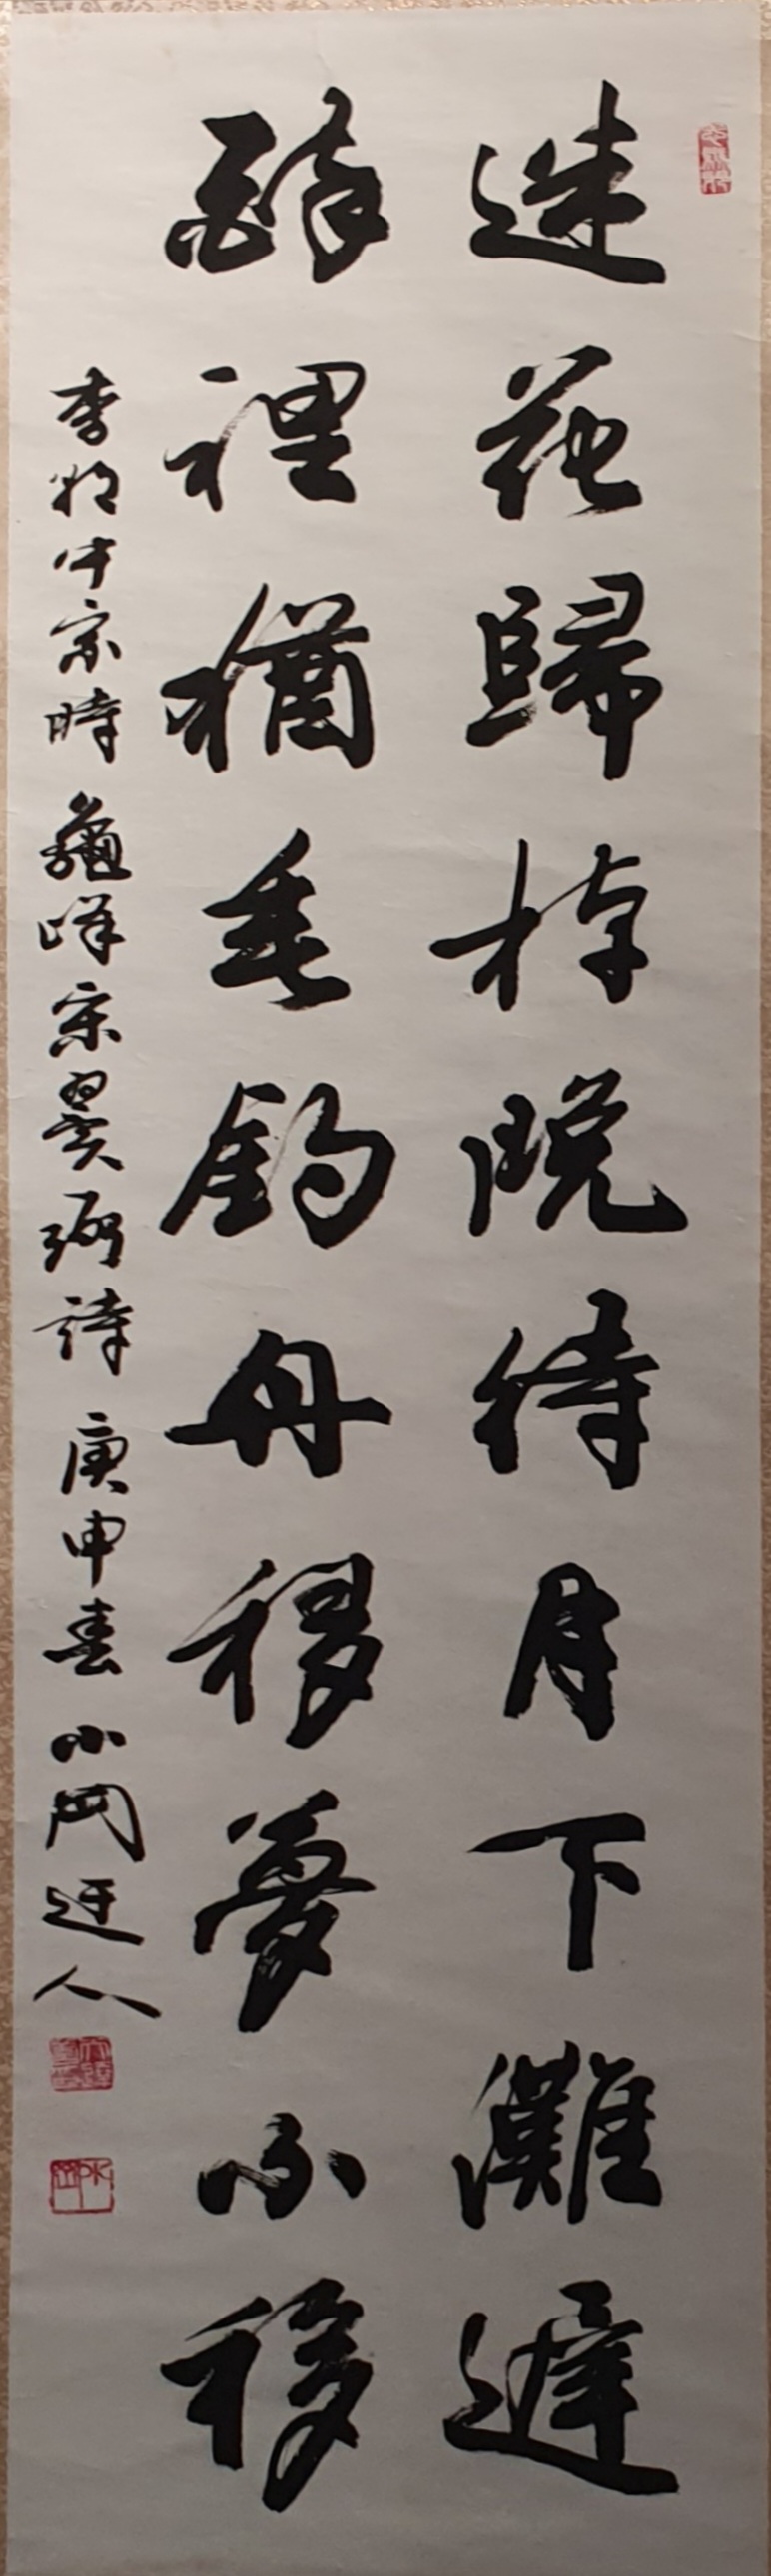 迷花歸棹晩待月下灘遲
醉裡猶垂釣舟移夢不移
李朝中宗時 龜峰宋翼弼詩 庚申春 小岡迂人